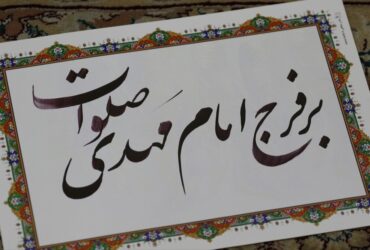 بر فرج امام مهدی صلوات